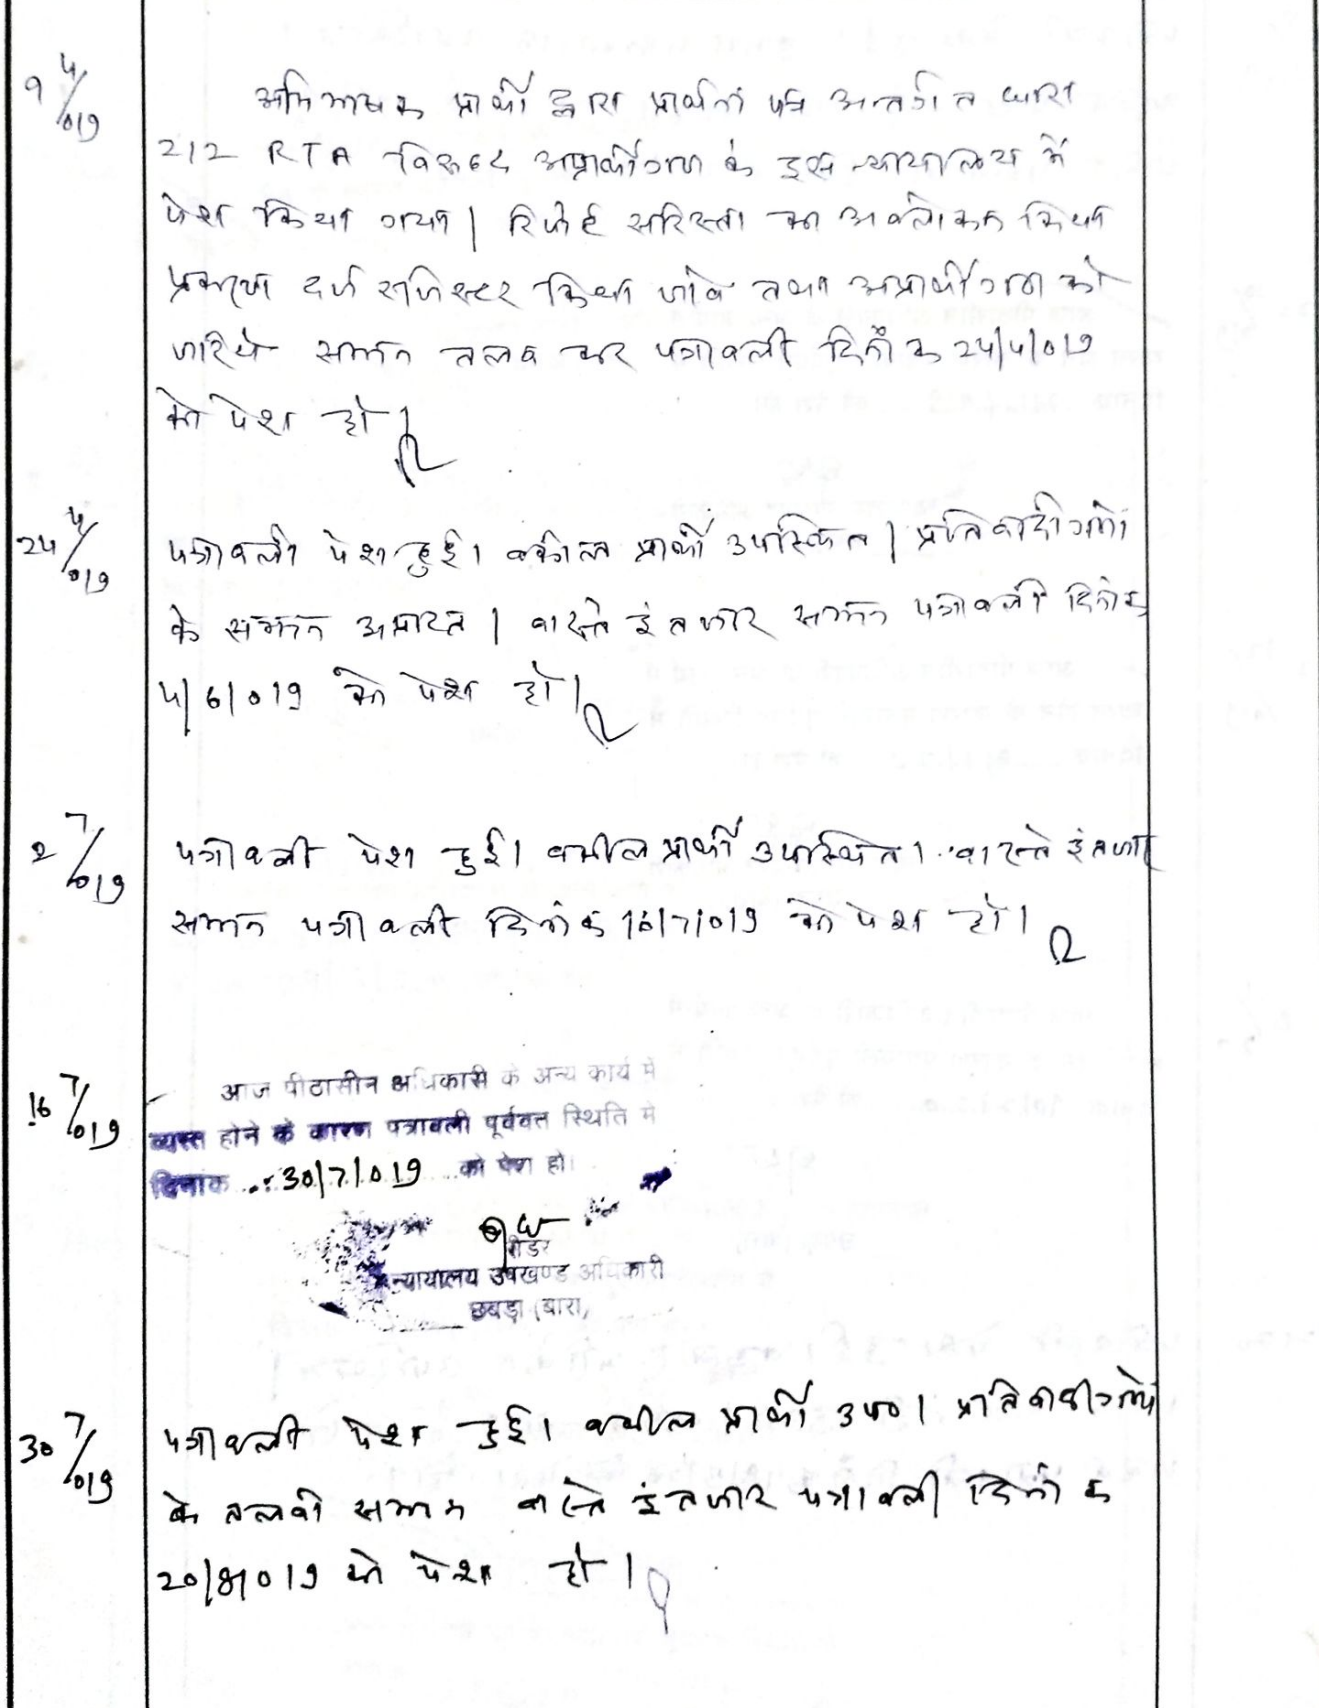 9/4/019
अभिभाषक प्रार्थी द्वारा प्रार्थना पत्र अन्तर्गत धारा
212 RTA विरूद्ध अप्रार्थीगण के इस न्यायालय में
पेश किया गया। रिपोर्ट सरिस्ता का अवलोकन किया
प्रकरण दर्ज रजिस्टर किया जावे तथा अप्रार्थीगण को
जरिये सम्मन तलब कर पत्रावली दिनाँक 24/4/019
को पेश हो।
24/4/019
पत्रावली पेश हुई। वकील प्रार्थी उपस्थित। प्रतिवादीगणों
के सम्मन अप्राप्त। वास्ते इंतजार सम्मन पत्रावली दिनांक
4/6/019 को पेश हो।
2/7/019
पत्रावली पेश हुई। वकील प्रार्थी उपस्थित। वास्ते इंतजार
सम्मन पत्रावली दिनांक 16/7/019 को पेश हो।
16/7/019
आज पीठासीन अधिकारी के अन्य कार्य मे
व्यस्त होने के कारण पत्रावली पूर्ववत स्थिति मे
दिनांक 30/7/019 को पेश हो।
रीडर
न्यायालय उपखण्ड अधिकारी
छबड़ा (बारा)
30/7/019
पत्रावली पेश हुई। वकील प्रार्थी उप0। प्रतिवादीगणों
के तलबी सम्मन वास्ते इंतजार पत्रावली दिनांक
20/8/019 को पेश हो।